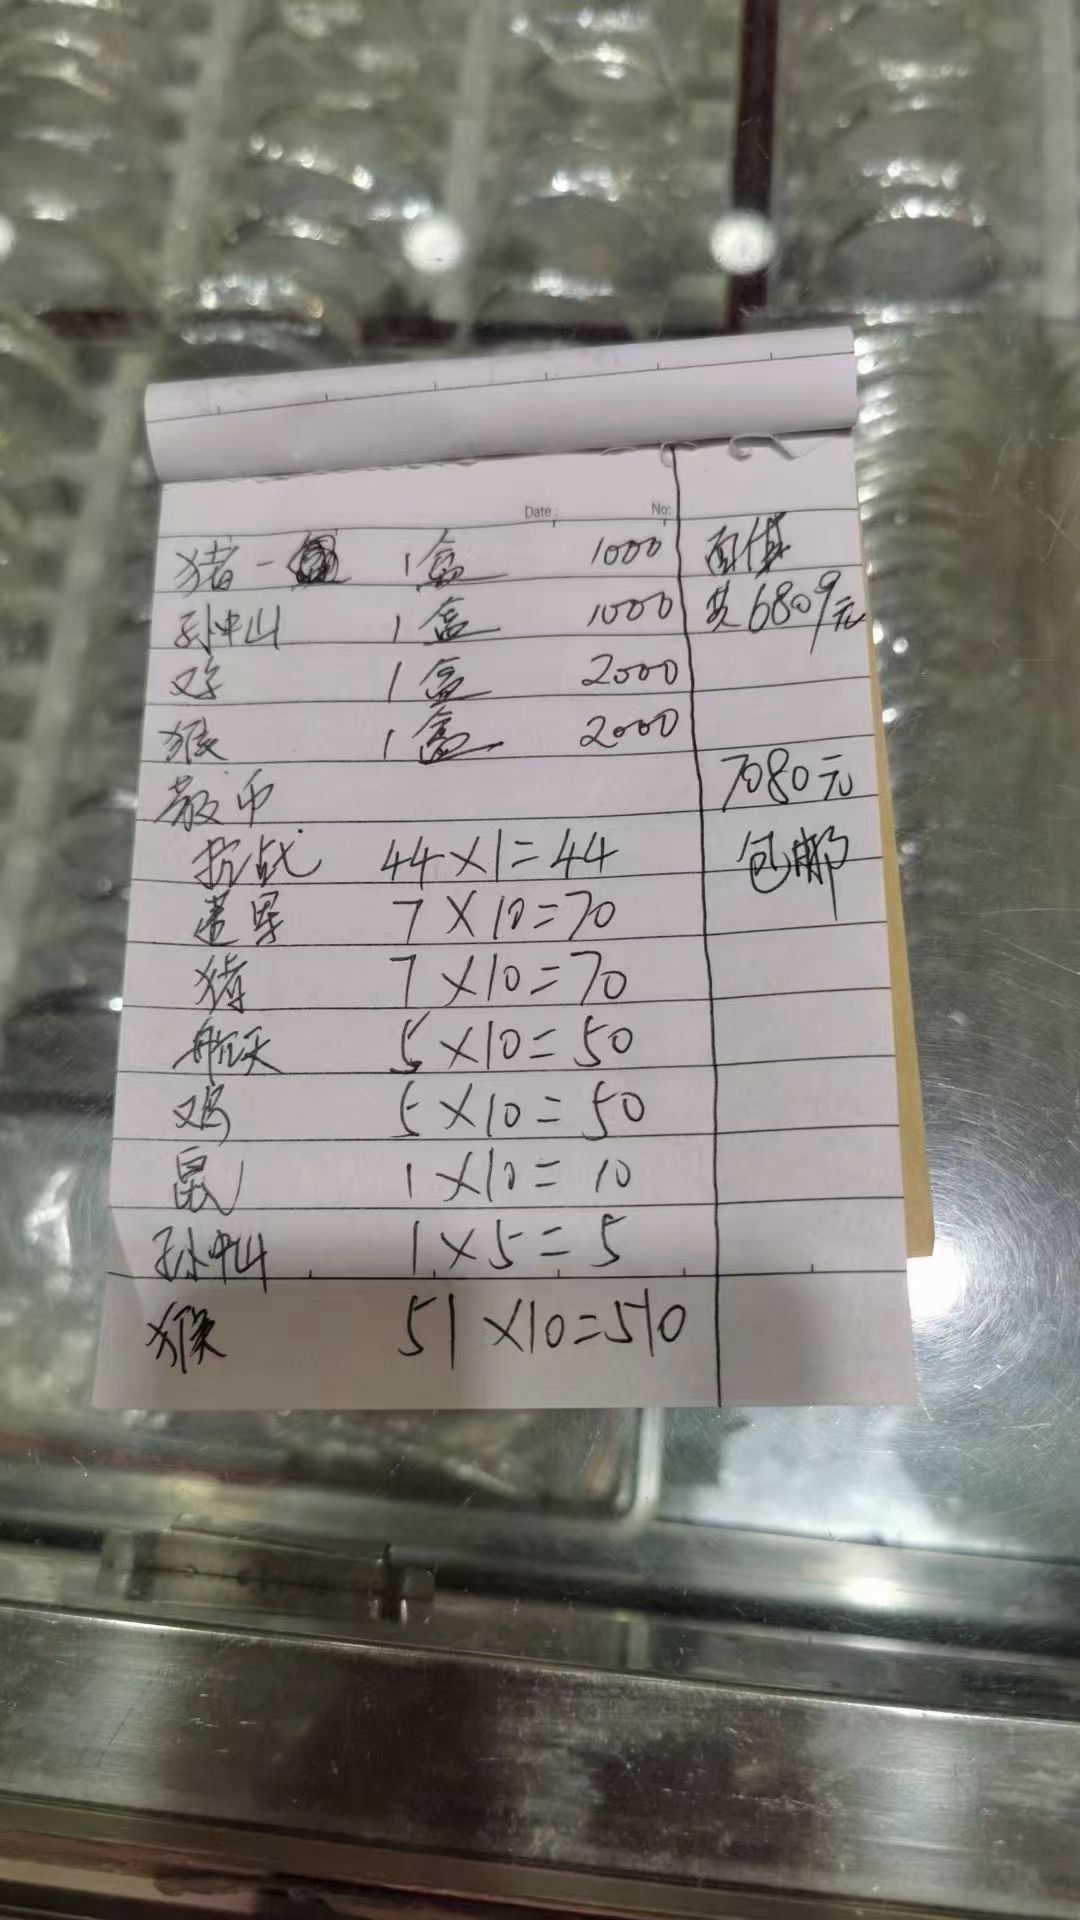 Date: No:
猪一 1盒 1000 面值
孙中山 1盒 1000 共6809元
鸡 1盒 2000
猴 1盒 2000
散币 7080元
抗战 44×1=44 包邮
7×10=70
猪 7×10=70
航天 5×10=50
鸡 5×10=50
鼠 1×10=10
孙中山 1×5=5
猴 51×10=510